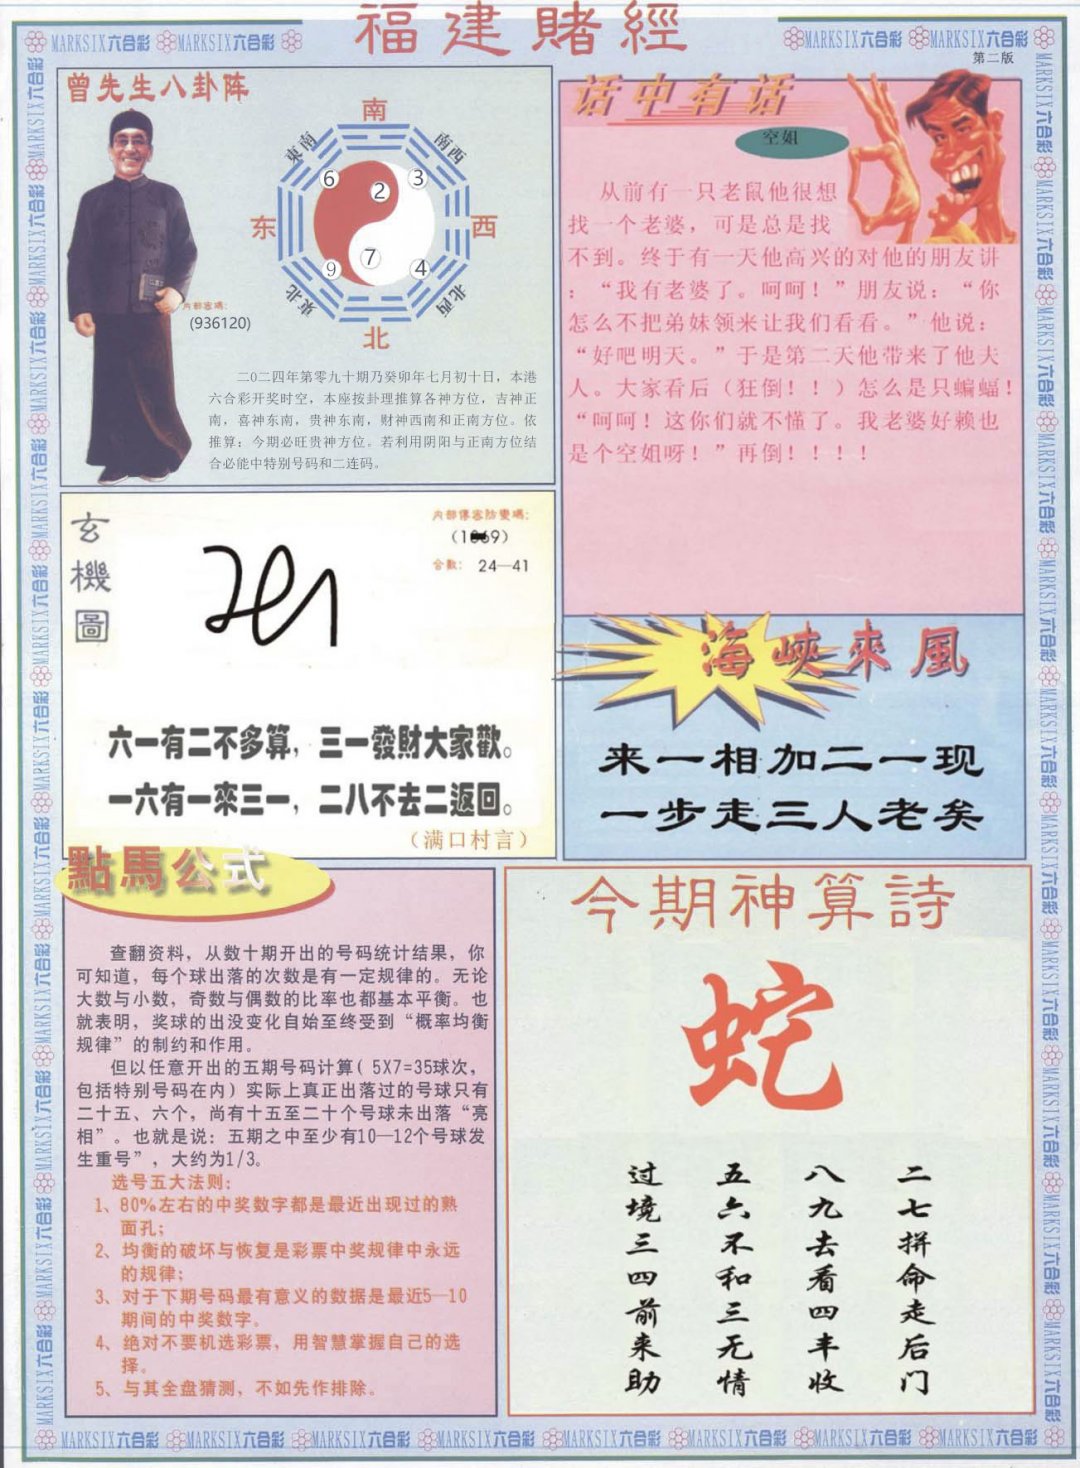 福建賭經
MARKSIX六合彩 MARKSIX六合彩 MARKSIX六合彩 MARKSIX六合彩
第二版
曾先生八卦阵
南
東南
南西
6
2
3
东
西
9
7
4
東北
北西
北
内部密碼:
(936120)
二0二四年第零九十期乃癸卯年七月初十日，本港
六合彩开奖时空，本座按卦理推算各神方位，吉神正
南，喜神东南，贵神东南，财神西南和正南方位。依
推算：今期必旺贵神方位。若利用阴阳与正南方位结
合必能中特别号码和二连码。
话中有话
空姐
从前有一只老鼠他很想
找一个老婆，可是总是找
不到。终于有一天他高兴的对他的朋友讲
：“我有老婆了。呵呵！”朋友说：“你
怎么不把弟妹领来让我们看看。”他说：
“好吧明天。”于是第二天他带来了他夫
人。大家看后（狂倒！！）怎么是只蝙蝠！
“呵呵！这你们就不懂了。我老婆好赖也
是个空姐呀！”再倒！！！！
玄機圖
内部傳密防變碼:
合數: 24—41
六一有二不多算，三一發財大家歡。
一六有一來三一，二八不去二返回。
（满口村言）
海峽來風
来一相加二一现
一步走三人老矣
點馬公式
查翻资料，从数十期开出的号码统计结果，你
可知道，每个球出落的次数是有一定规律的。无论
大数与小数，奇数与偶数的比率也都基本平衡。也
就表明，奖球的出没变化自始至终受到“概率均衡
规律”的制约和作用。
但以任意开出的五期号码计算( 5X7=35球次，
包括特别号码在内）实际上真正出落过的号球只有
二十五、六个，尚有十五至二十个号球未出落“亮
相”。也就是说：五期之中至少有10—12个号球发
生重号”，大约为1/3。
选号五大法则:
1、80%左右的中奖数字都是最近出现过的熟
面孔；
2、均衡的破坏与恢复是彩票中奖规律中永远
的规律；
3、对于下期号码最有意义的数据是最近5—10
期间的中奖数字。
4、绝对不要机选彩票，用智慧掌握自己的选
择。
5、与其全盘猜测，不如先作排除。
今期神算詩
蛇
二七拼命走后门
八九去看四丰收
五六不和三无情
过境三四前来助
MARKSIX六合彩 MARKSIX六合彩 MARKSIX六合彩 MARKSIX六合彩 MARKSIX六合彩 MARKSIX六合彩 MARKSIX六合彩 MARKSIX六合彩